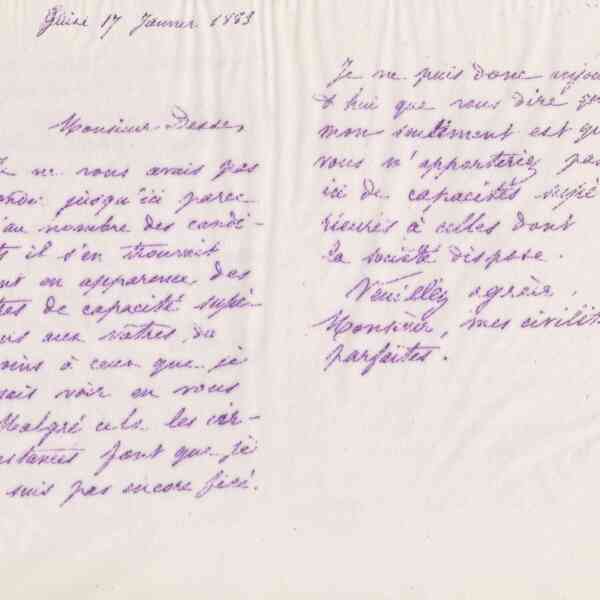 Guise 17 Janvier 1883
Monsieur Desse,
Je ne vous avais pas
jusqu'ici parce
nombre des candi-
il s'en trouvait
en apparence des
de capacité supé-
aux vôtres, du
à ceux que je
voir en vous
Malgré cela les cir-
font que je
suis pas encore fixé.
Je ne puis donc
d'hui que vous dire
mon sentiment est
vous n'apporteriez pas
ici de capacités supé
rieures à celles dont
la société dispose.
Veuillez agréer,
Monsieur, mes
parfaites.